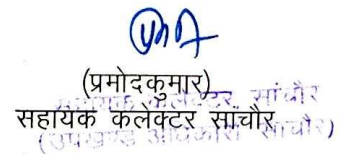 (प्रमोदकुमार)
सहायक कलेक्टर सांचौर
सहायक कलेक्टर, सांचौर
(उपखण्ड अधिकारी सांचौर)